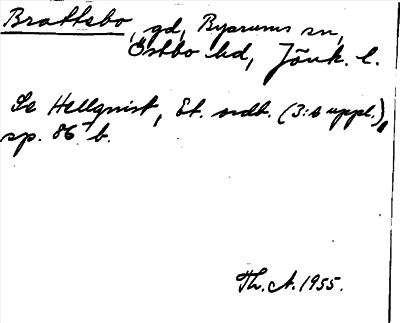 Brattsbo, gd, Byarums sn,
Östbo hd, Jönk. l.
Se Hellquist, Et. ordb. (3:e uppl.),
sp. 86 b.
Th. A. 1955.